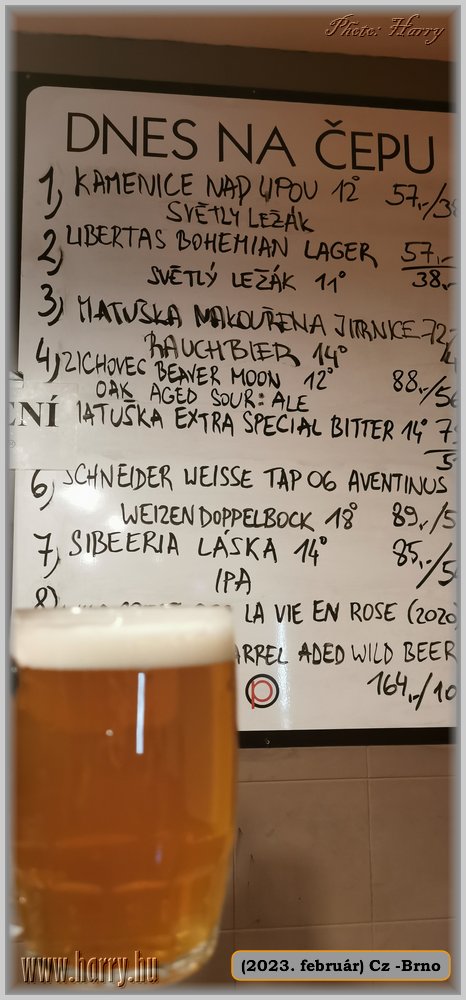 Photo: Harry
DNES NA ČEPU
1) KAMENICE NAD LIPOU 12° 57,-/38
SVĚTLÝ LEŽÁK
2) LIBERTAS BOHEMIAN LAGER 57,-
SVĚTLÝ LEŽÁK 11° 38,-
3) MATUŠKA NAKOUŘENÁ JITRNICE 72,-
RAUCHBIER 14°
4) ZICHOVEC BEAVER MOON 12° 88,-/56
OAK AGED SOUR ALE
ENÍ
MATUŠKA EXTRA SPECIAL BITTER 14°
6) SCHNEIDER WEISSE TAP 06 AVENTINUS
WEIZENDOPPELBOCK 18° 89,-/5
7) SIBEERIA LÁSKA 14° 85,-/5
IPA
8) LA VIE EN ROSE (2020
ARREL ADED WILD BEER
164,-/10
www.harry.hu
(2023. február) Cz -Brno